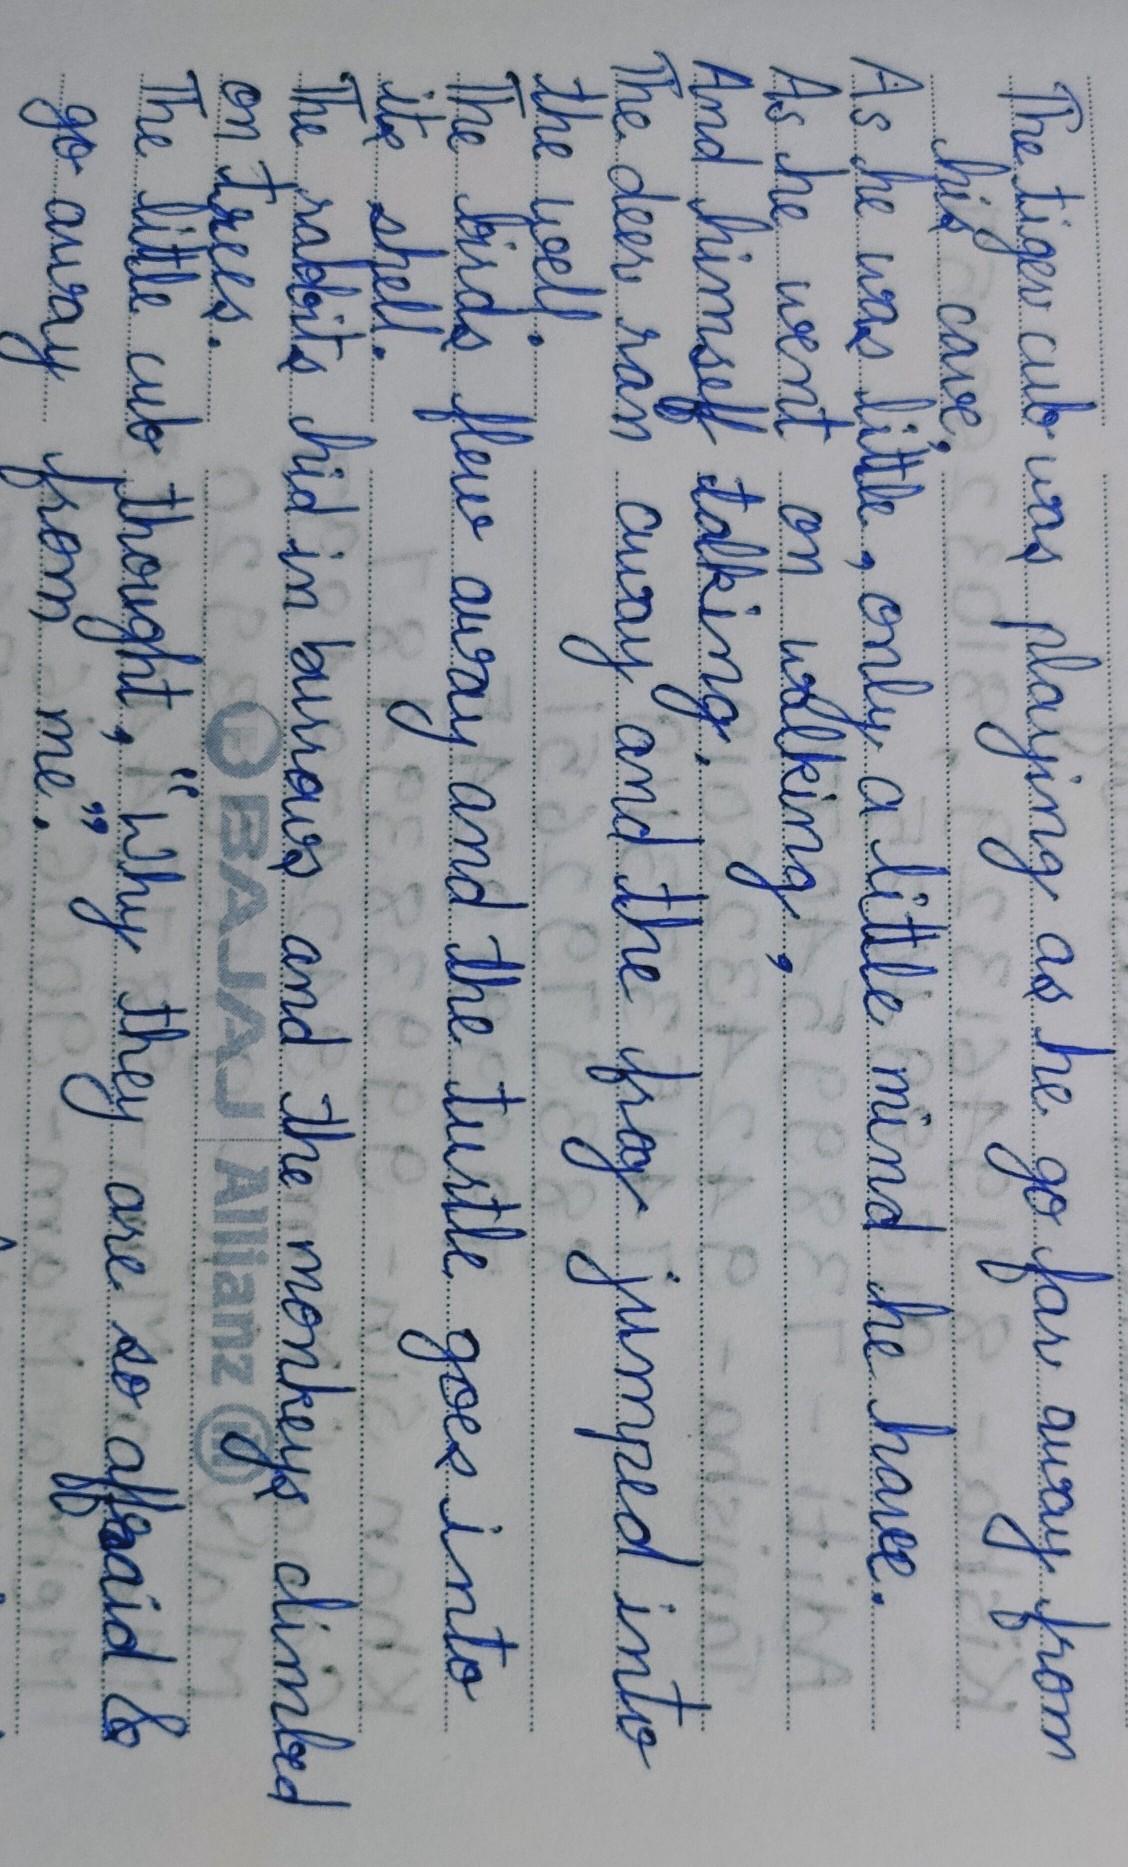 The tiger cub was playing as he go far away from
his cave,
As he was little, only a little mind he have.
As he went on walking,
And himself talking.
The deer ran away and the frog jumped into
the well.
The birds flew away and the turtle goes into
its shell.
The rabbits hid in burrows and the monkeys climbed
on trees.
BAJAJ Allianz
The little cub thought, "Why they are so affraid &
go away from me."